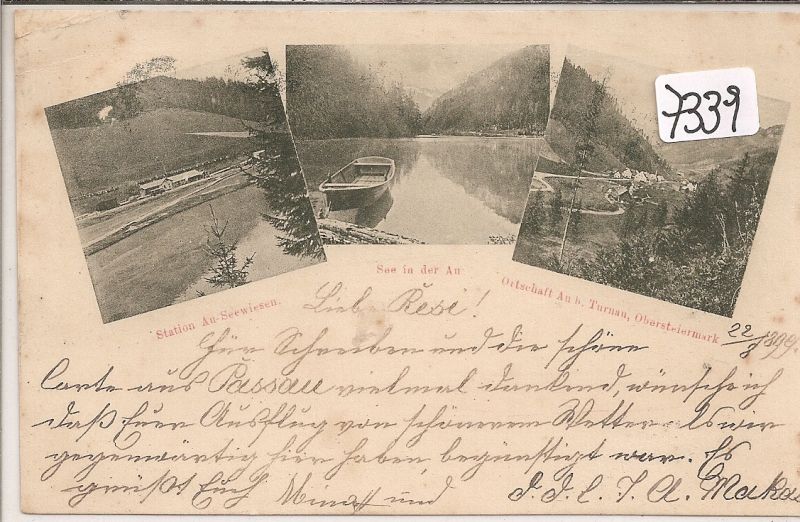 7339
See in der Au
Station Au-Seewiesen.
Ortschaft Au b. Turnau, Obersteiermark
22/8 1899.
Liebe Resi!
Für Schreiben und die schöne
Carte aus Passau vielmal dankend, wünsche ich
daß Euer Ausflug von schönerem Wetter als wir
gegenwärtig hier haben begünstigt war. Es
grüßt Euch und